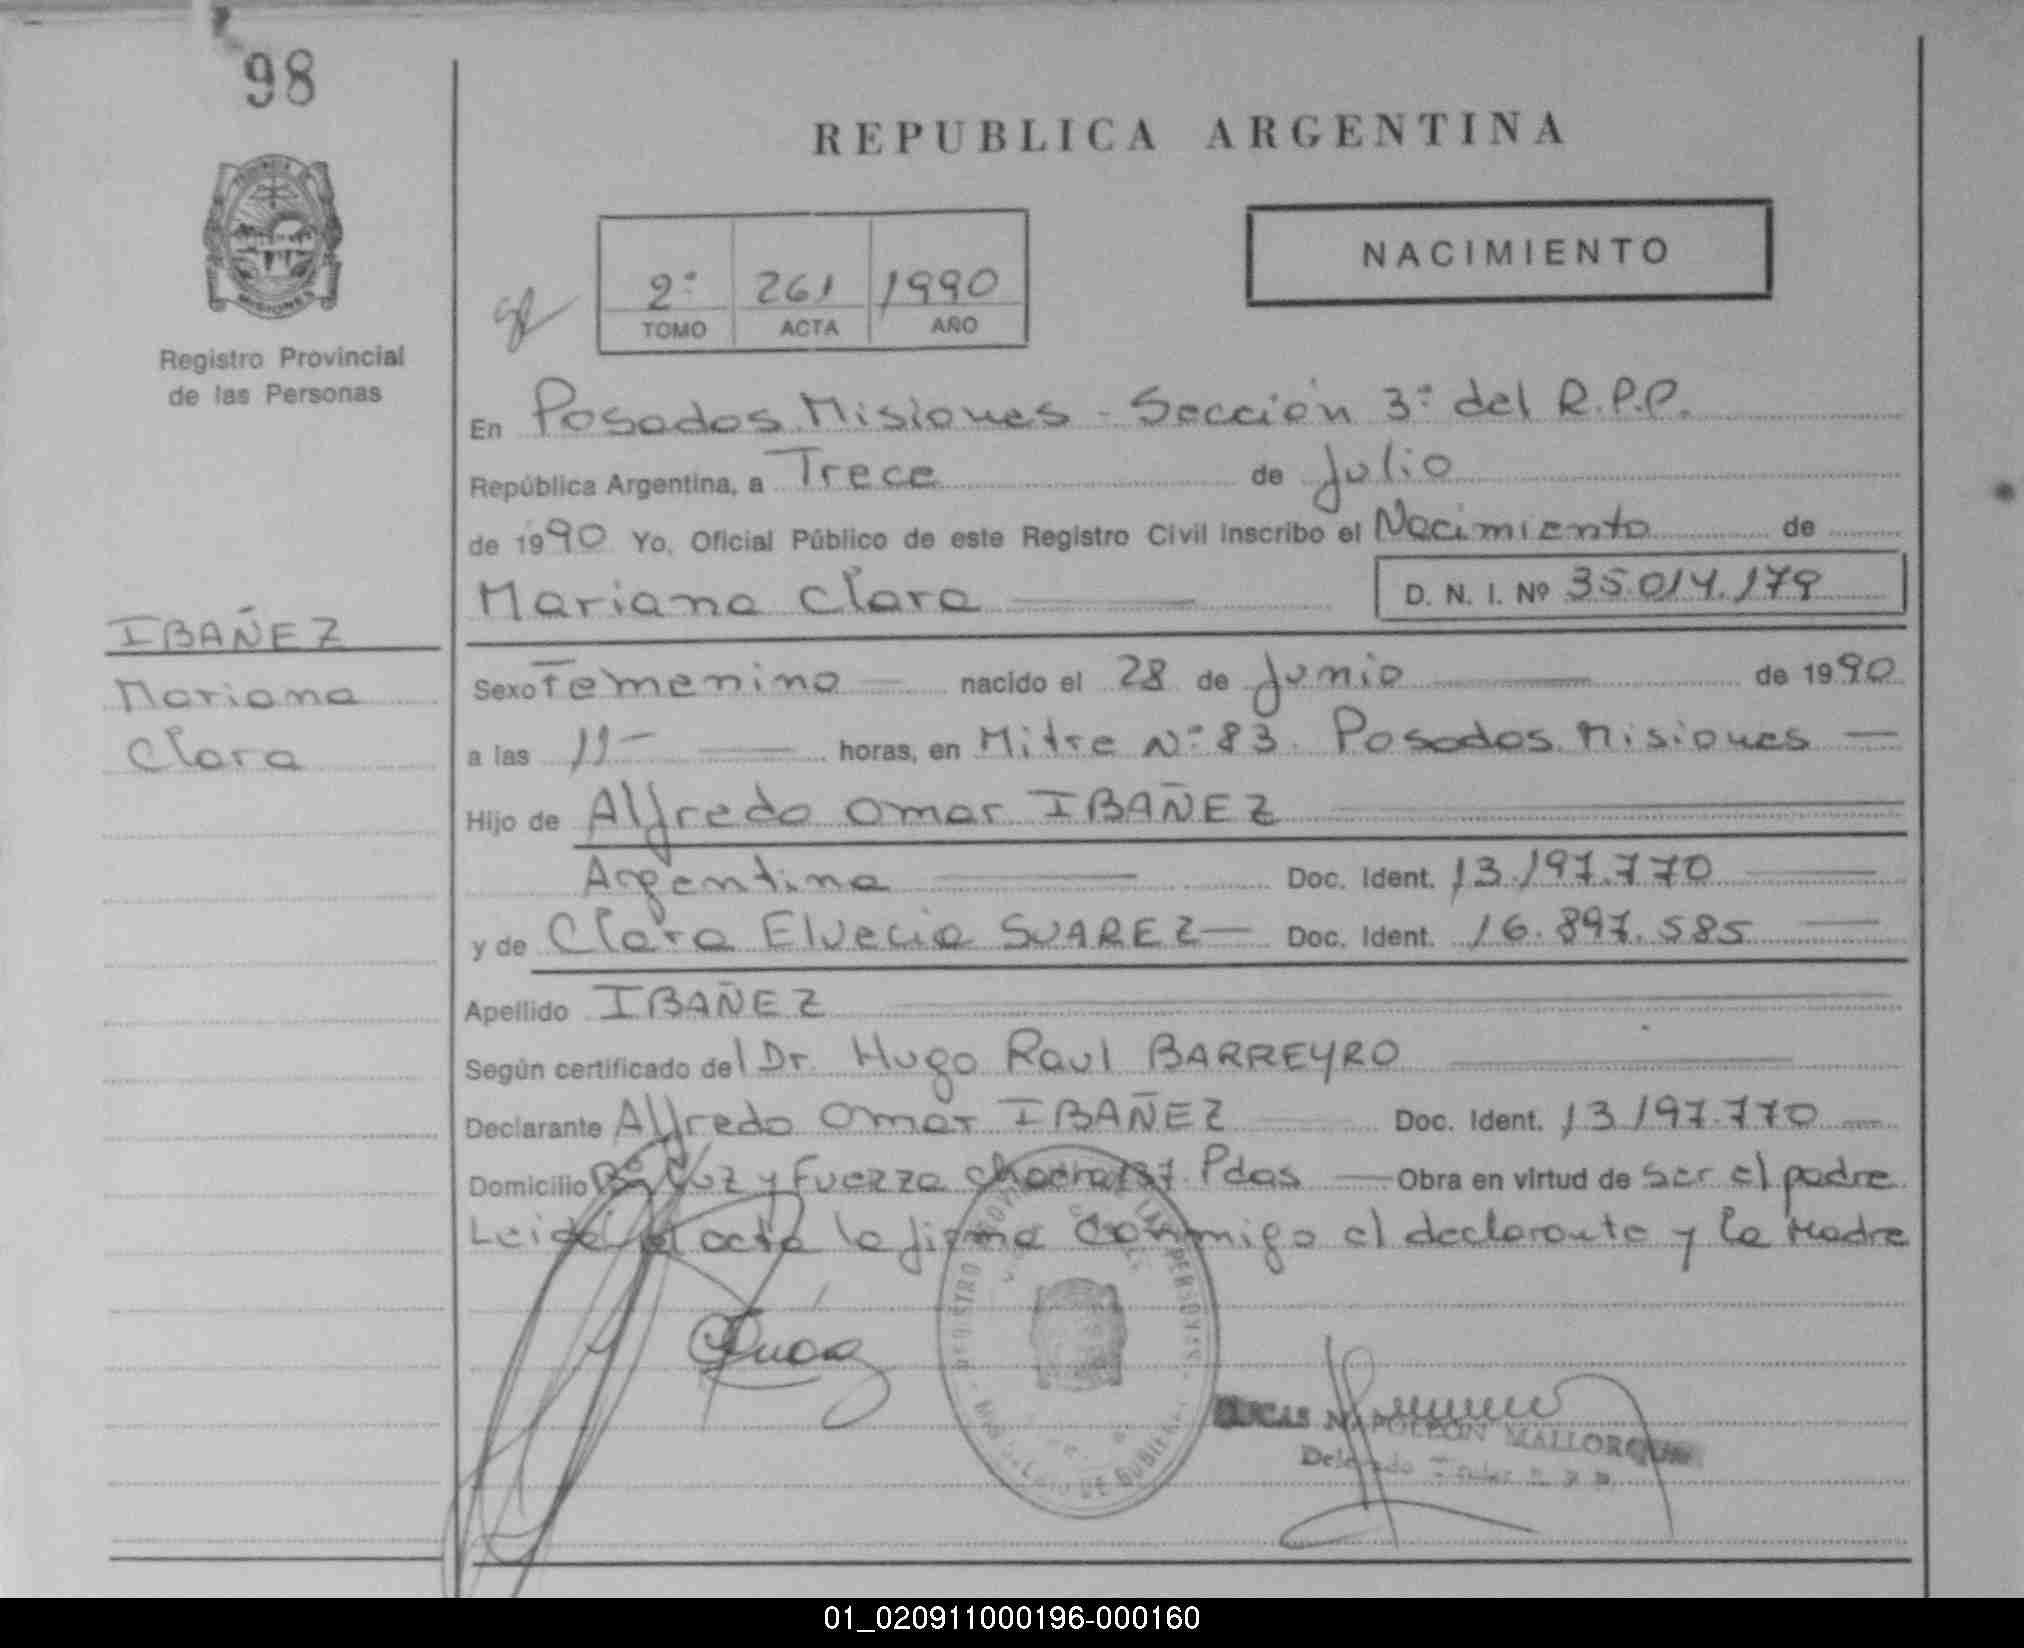 98
REPUBLICA ARGENTINA
NACIMIENTO
2º 261 1990
TOMO ACTA AÑO
MISIONES
Registro Provincial
de las Personas
En Posadas Misiones - Sección 3º del R.P.P.
República Argentina, a Trece de Julio
de 1990 Yo, Oficial Público de este Registro Civil inscribo el Nacimiento de
Mariana Clara D. N. I. Nº 35.014.179
IBAÑEZ
Mariana
Clara
Sexo Femenino nacido el 28 de Junio de 1990
a las 11- horas, en Mitre Nº 83. Posadas Misiones
Hijo de Alfredo Omar IBAÑEZ
Argentina Doc. Ident. 13.197.770
y de Clara Elvecia SUAREZ Doc. Ident. 16.897.585
Apellido IBAÑEZ
Según certificado del Dr. Hugo Raul BARREYRO
Declarante Alfredo Omar IBAÑEZ Doc. Ident. 13.197.770
Domicilio Bº Luz y Fuerza chacra Pdas Obra en virtud de ser el padre
Leida el acta la firma conmigo el declarante y la Madre
LUCAS NAPOLEON MALLORQUIN
Delegado Titular
01_020911000196-000160